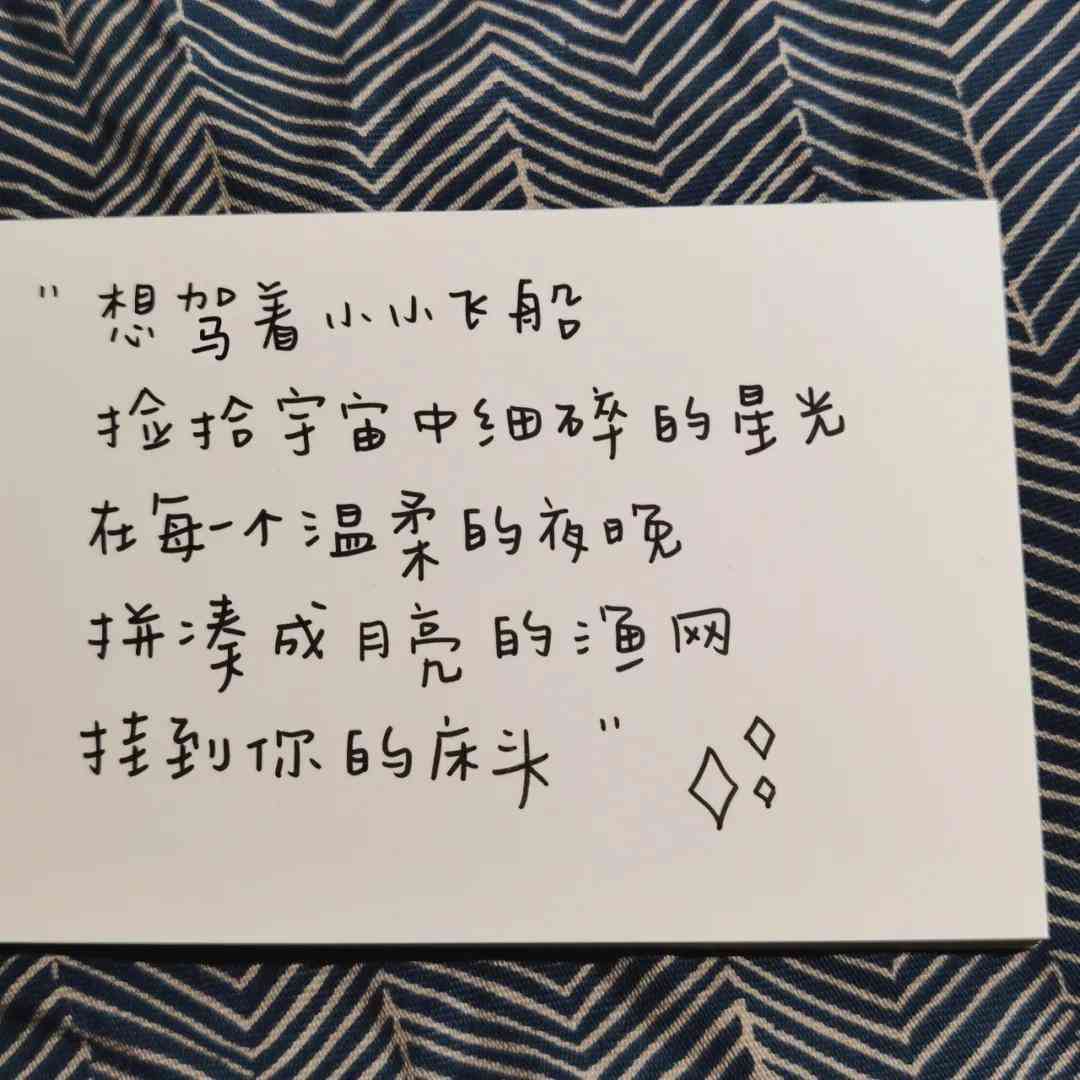 "想驾着小小飞船
捡拾宇宙中细碎的星光
在每一个温柔的夜晚
拼凑成月亮的渔网
挂到你的床头"